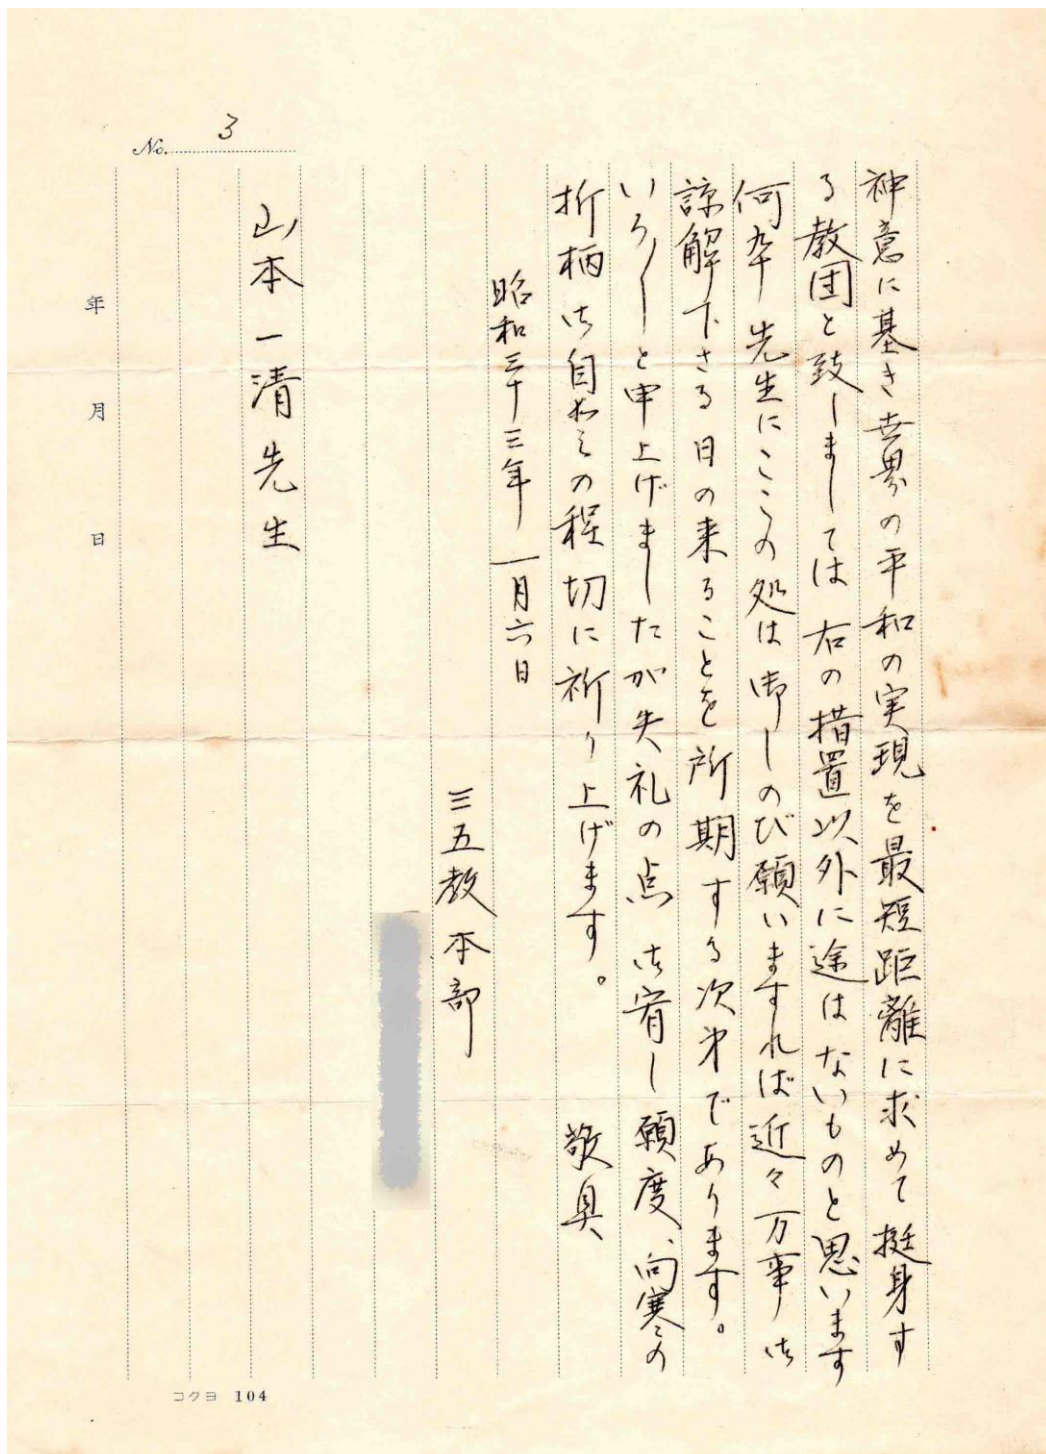 No. 3
神意に基き世界の平和の実現を最短距離に求めて挺身す
る教団と致しましては右の措置以外に途はないものと思います
何卒先生にここの処は御しのび願いますれば近々万事御
諒解下さる日の来ることを所期する次第であります。
いろ〳〵と申上げましたが失礼の点御宥し願度、向寒の
折柄御自愛の程切に祈り上げます。 敬具
昭和三十三年一月六日
三五教本部
山本一清先生
年 月 日
コクヨ 104